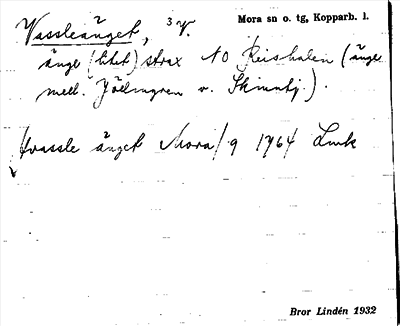 Vassleänget, 3 V. Mora sn o. tg, Kopparb. l.
änge (litet) strax NO Reishalen (änge
mell. o. ).
änget Mora 9 1764 Lmk
Bror Lindén 1932